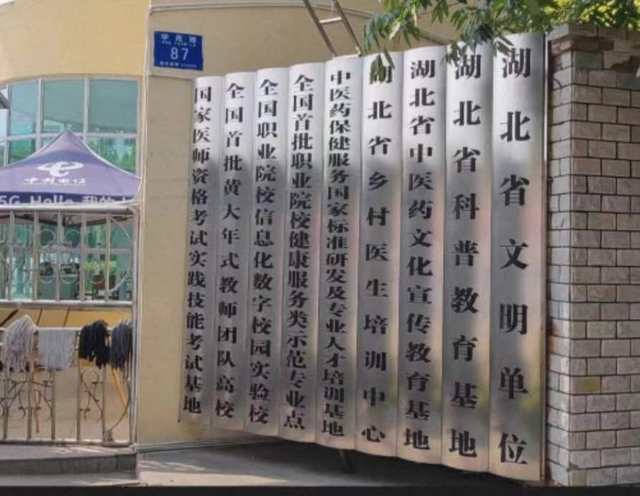 湖北省文明单位
湖北省科普教育基地
湖北省中医药文化宣传教育基地
湖北省乡村医生培训中心
中医药保健服务国家标准研发及专业人才培训基地
全国首批职业院校健康服务类示范专业点
全国职业院校信息化数字校园实验校
全国首批黄大年式教师团队高校
国家医师资格考试实践技能考试基地
87
中国电信
5G Hello